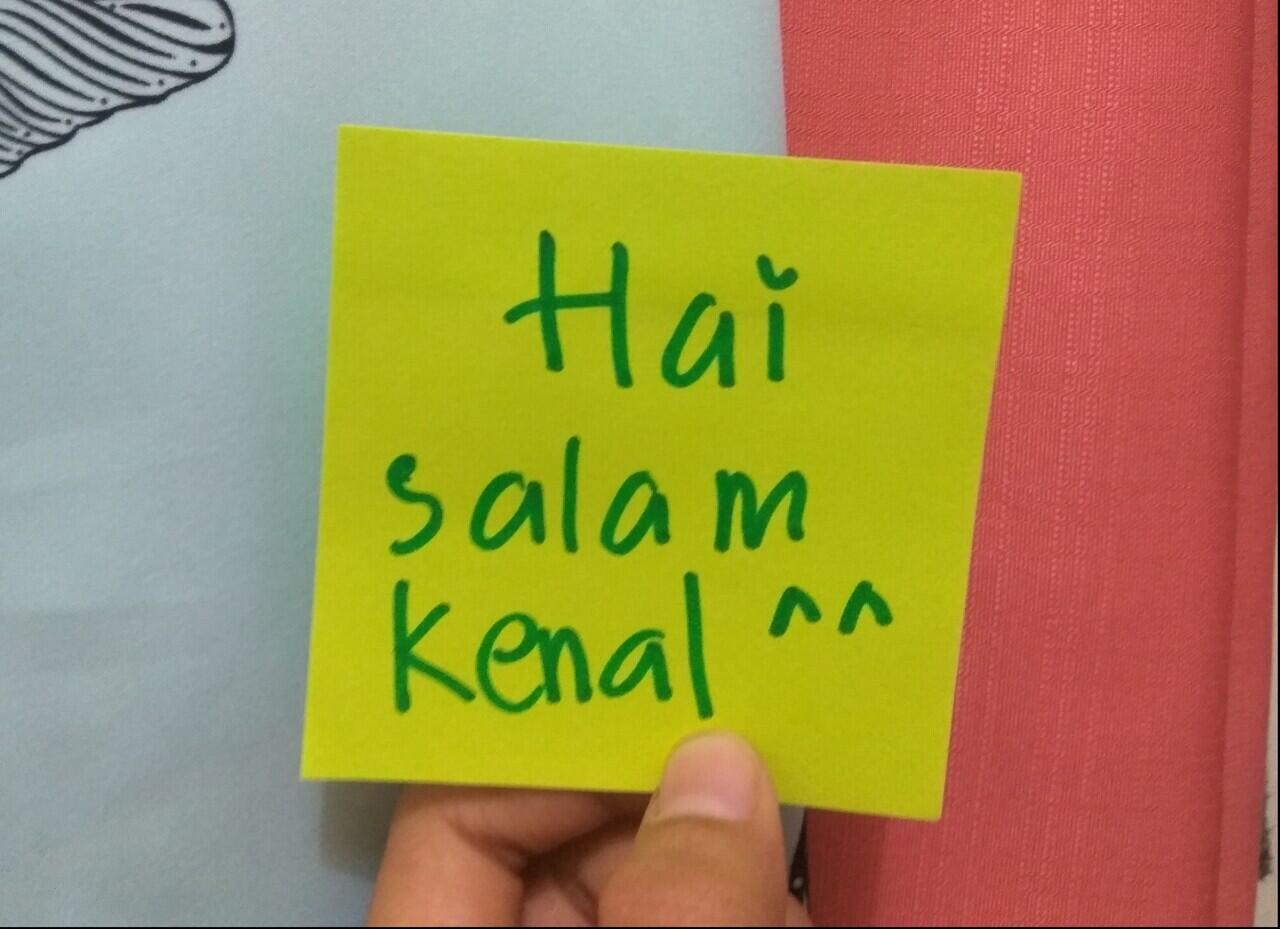 Hai
salam
Kenal ^^